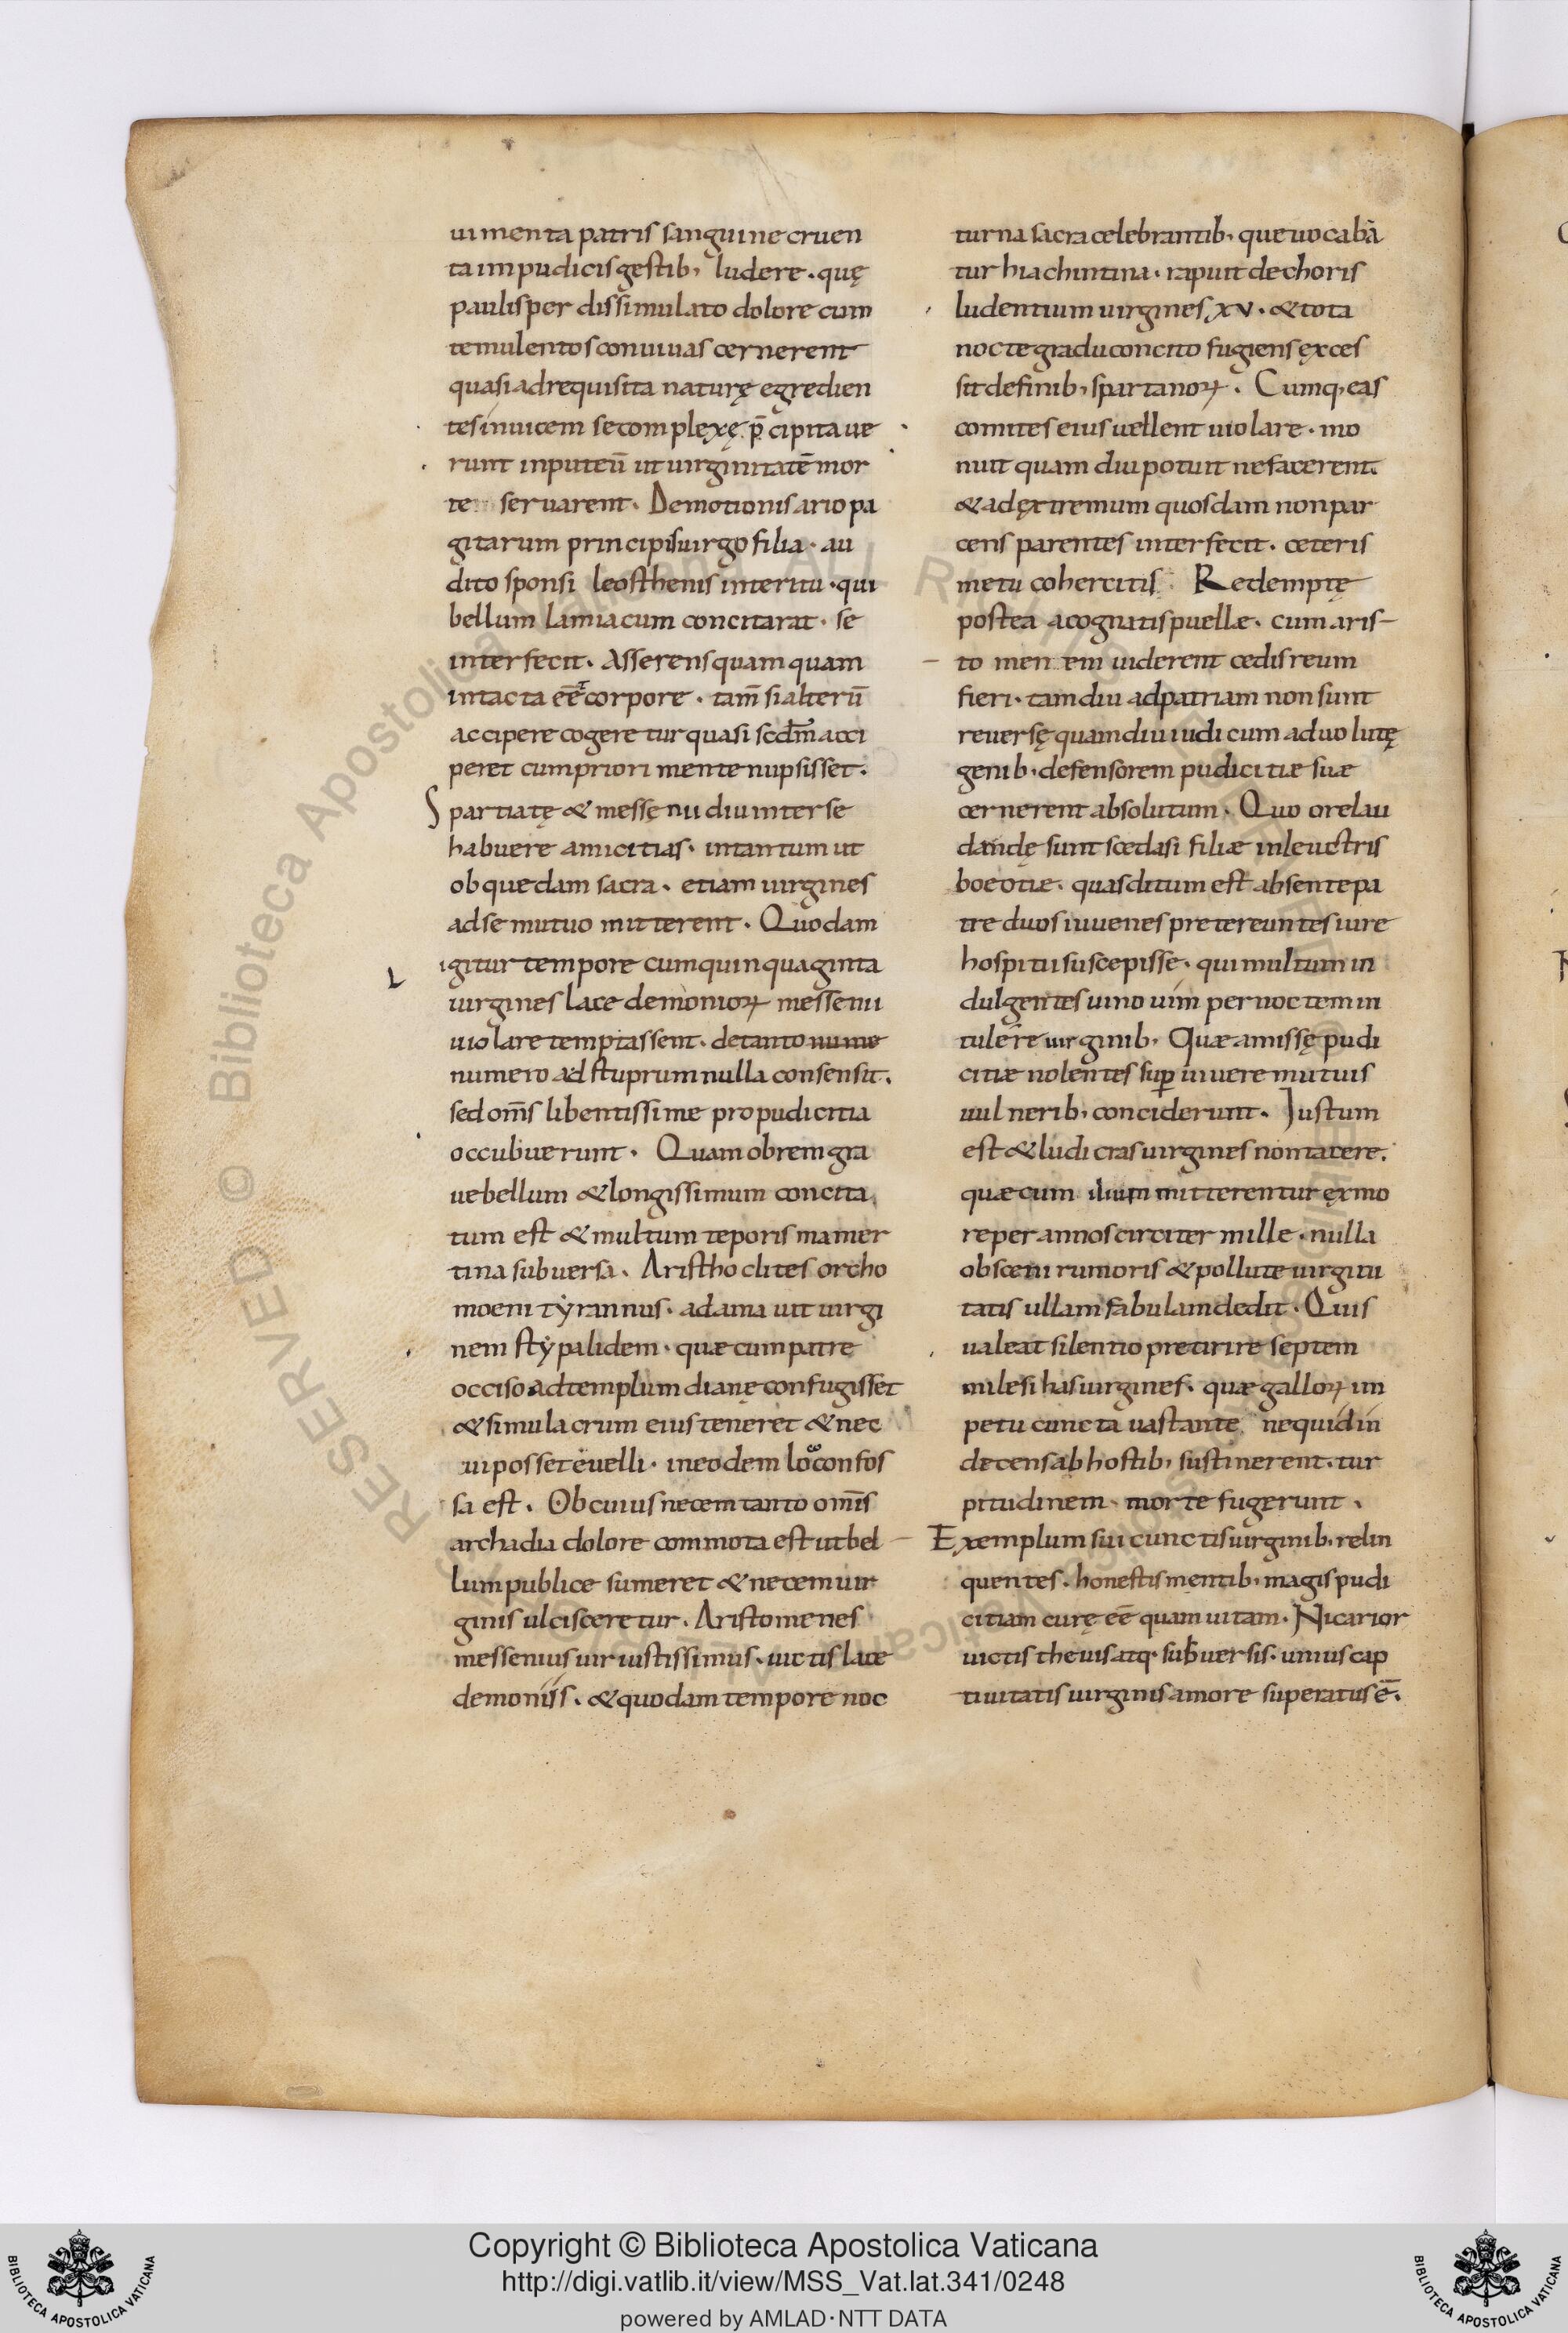 uimenta patris sanguine cruen
ta impudicis gestib; ludere. quę
paulisper dissimulato dolore cum
temulentos conuiuas cernerent
quasi ad requisita naturę egredien
tes inuicem se complexę p̄cipitaue
runt in puteū ut uirginitatē mor
te seruarent. Demotionis ariopa
gitarum principis uirgo filia. au
dito sponsi leosthenis interitu. qui
bellum lamiacum concitarat. se
interfecit. Asserens quam quam
intacta eēt corpore. tam̄ si alterū
accipere cogeretur quasi scdm̄ acci
peret cum priori mente nupsisset.
Spartiatę & messęnii diu inter se
habuere amicitias. intantum ut
ob quedam sacra. etiam uirgines
ad se mutuo mitterent. Quodam
igitur tempore cum quinquaginta
uirgines lacedemonioꝝ messenii
uiolare temptassent. de tanto nume
numero ad stuprum nulla consensit.
sed om̄s libentissime pro pudicitia
occubuerunt. Quam obrem gra
ue bellum & longissimum concita
tum est & multum teporis mamer
tina subuersa. Aristhoclites orcho
moeni tẏrannus. adamauit uirgi
nem stẏpalidem. quæ cum patre
occiso ad templum dianę confugisset
& simulacrum eius teneret & nec
ui posset euelli. in eodem loco confos
sa est. Ob cuius necem tanto om̄is
archadia dolore commota est ut bel
lum publice sumeret & necem uir
ginis ulcisceretur. Aristomenes
messenius uir iustissimus. uictis lace
demoniis. & quodam tempore noc
turna sacra celebrantib; que uocabā
tur hiachintina. rapuit de choris
ludentium uirgines xv. & tota
nocte gradu concito fugiens ęxces
sit de finib; spartanoꝝ. Cumq; eas
comites eius uellent uiolare. mo
nuit quam diu potuit ne facerent.
& ad ęxtremum quosdam non par
cens parentes interfecit. ceteris
metu cohercitis. Redemptę
postea a cognatis puellæ. cum aris-
to men em uiderent cedis reum
fieri. tam diu ad patriam non sunt
reuersę quam diu iudicum aduolutę
genib; defensorem pudicitiæ suæ
cernerent absolutum. Quo ore lau
dandę sunt scedasi filiæ in leuctris
boeotiæ. quas ditum est absente pa
tre duos iuuenes pretereuntes iure
hospitii suscepisse. qui multum in
dulgentes uino uim per noctem in
tulere uirginib; Quæ amissę pudi
citiæ nolentes suꝑuiuere mutuis
uulnerib; conciderunt. Iustum
est & ludicras uirgines non tacere.
quæ cum ilium mitterentur ęx mo
re per annos circiter mille. nulla
obsceni rumoris & pollute uirgitu
tatis ullam fabulam dedit. Quis
ualeat silentio pretirire septem
milesi has uirgines. quæ galloꝝ im
petu cuncta uastante ne quid in
decens ab hostib; sustinerent. tur
pitudinem morte fugerunt.
Exemplum sui cunctis uirginib; relin
quentes. honestis mentib; magis pudi
citiam curę eē quam uitam. Nicarior
uictis theuis atq; subuersis. unius cap
tiuitatis uirginis amore superatus ē.
L
Copyright © Biblioteca Apostolica Vaticana
http://digi.vatlib.it/view/MSS_Vat.lat.341/0248
powered by AMLAD·NTT DATA
BIBLIOTECA APOSTOLICA VATICANA
BIBLIOTECA APOSTOLICA VATICANA